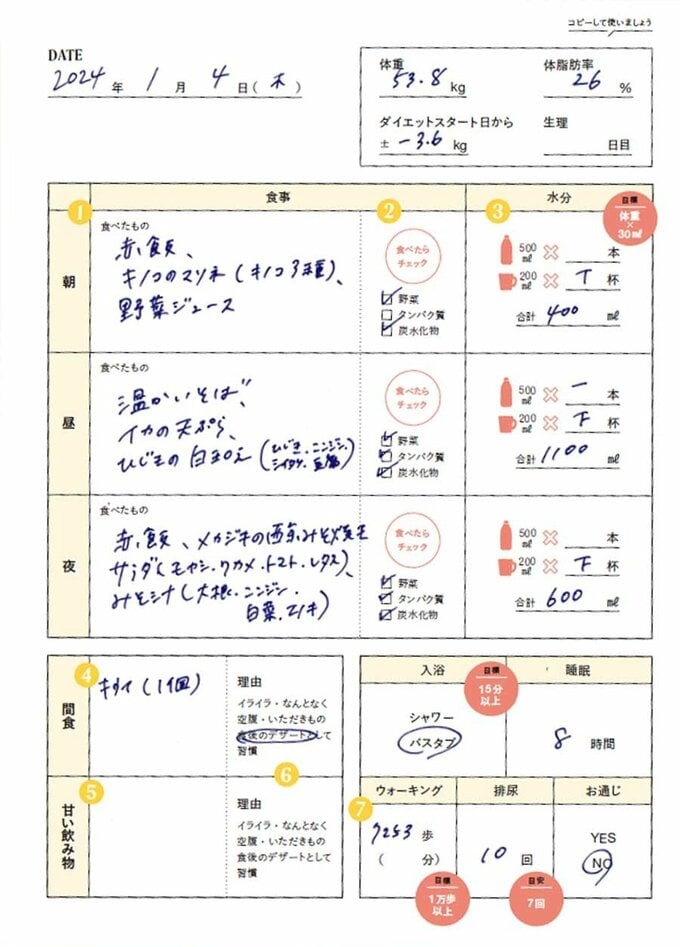 コピーして使いましょう
DATE
2024年 1月 4日(木)
体重
53.8 kg
体脂肪率
26 %
ダイエットスタート日から
± −3.6 kg
生理
日目
食事
水分
目標
体重
×
30㎖
1
2
3
朝
食べたもの
赤飯、
キノコのマリネ(キノコ3種)、
野菜ジュース
食べたら
チェック
野菜
タンパク質
炭水化物
500㎖ × 本
200㎖ × T 杯
合計 400 ㎖
昼
食べたもの
温かいそば、
イカの天ぷら、
ひじきの白和え(ひじき、ニンジン、
シイタケ、豆腐)
食べたら
チェック
野菜
タンパク質
炭水化物
500㎖ × 一 本
200㎖ × 下 杯
合計 1100 ㎖
夜
食べたもの
赤飯、メカジキの西京みそ焼き
サラダ(モヤシ・ワカメ・トマト・レタス)、
みそ汁(大根・ニンジン・
白菜・エノキ)
食べたら
チェック
野菜
タンパク質
炭水化物
500㎖ × 本
200㎖ × 下 杯
合計 600 ㎖
4
間食
(1個)
理由
イライラ・なんとなく
空腹・いただきもの
食後のデザートとして
習慣
5
甘い飲み物
6
理由
イライラ・なんとなく
空腹・いただきもの
食後のデザートとして
習慣
入浴
目標
15分
以上
シャワー
バスタブ
睡眠
8 時間
7
ウォーキング
7253 歩
( 分)
目標
1万歩
以上
排尿
10 回
目安
7回
お通じ
YES
NO